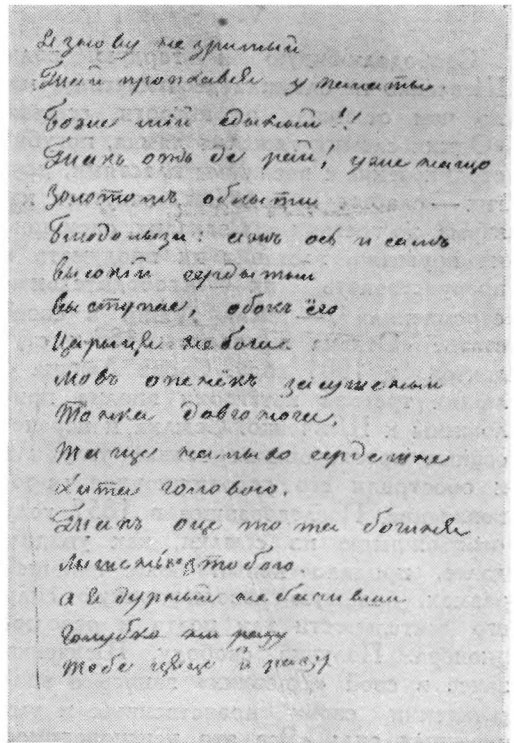 Я знову не зрымый
Тай пропхався у палаты
Боже мій едыный!!
Такъ отъ де рай! уже нащо
Золотомъ облыти
Блюдолызы: ажъ ось и самъ
высокій сердытый
выступае, обокъ ёго
Царыця небога
мовъ опенёкъ засушеный
Тонка довгонога,
Та ще на лыхо сердешне
Хита головою.
Такъ оце то та богыня
Лышенько з тобою
а я дурный не бачывши
голубко ни разу
тебе цяце й разу